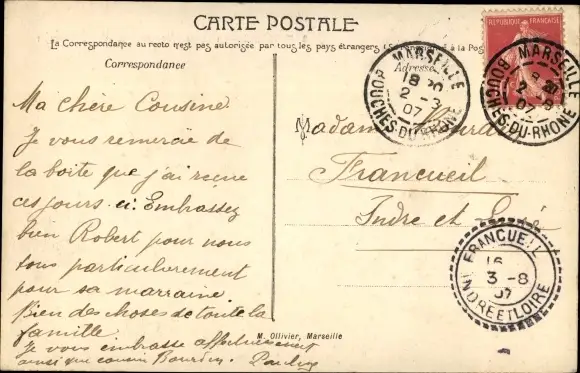 CARTE POSTALE
La Correspondance au recto n'est pas autorisée par tous les pays étrangers (Se renseigner à la Pos
Correspondance
Adresse
REPUBLIQUE FRANÇAISE
MARSEILLE
18 20
2 - 8
07
BOUCHES-DU-RHONE
MARSEILLE
8 20
2 - 8
07
BOUCHES-DU-RHONE
Ma chère Cousine
Je vous remercie de
la boîte que j'ai reçue
ces jours ci. Embrassez
bien Robert pour nous
tous particulièrement
pour sa marraine.
Bien des choses de toute la
famille
Je vous embrasse affectueusement
ainsi que cousin Bourdin.
Madame
Francueil
Indre et Loire
FRANCUEIL
16
3 - 8
07
INDRE ET LOIRE
M. Ollivier, Marseille